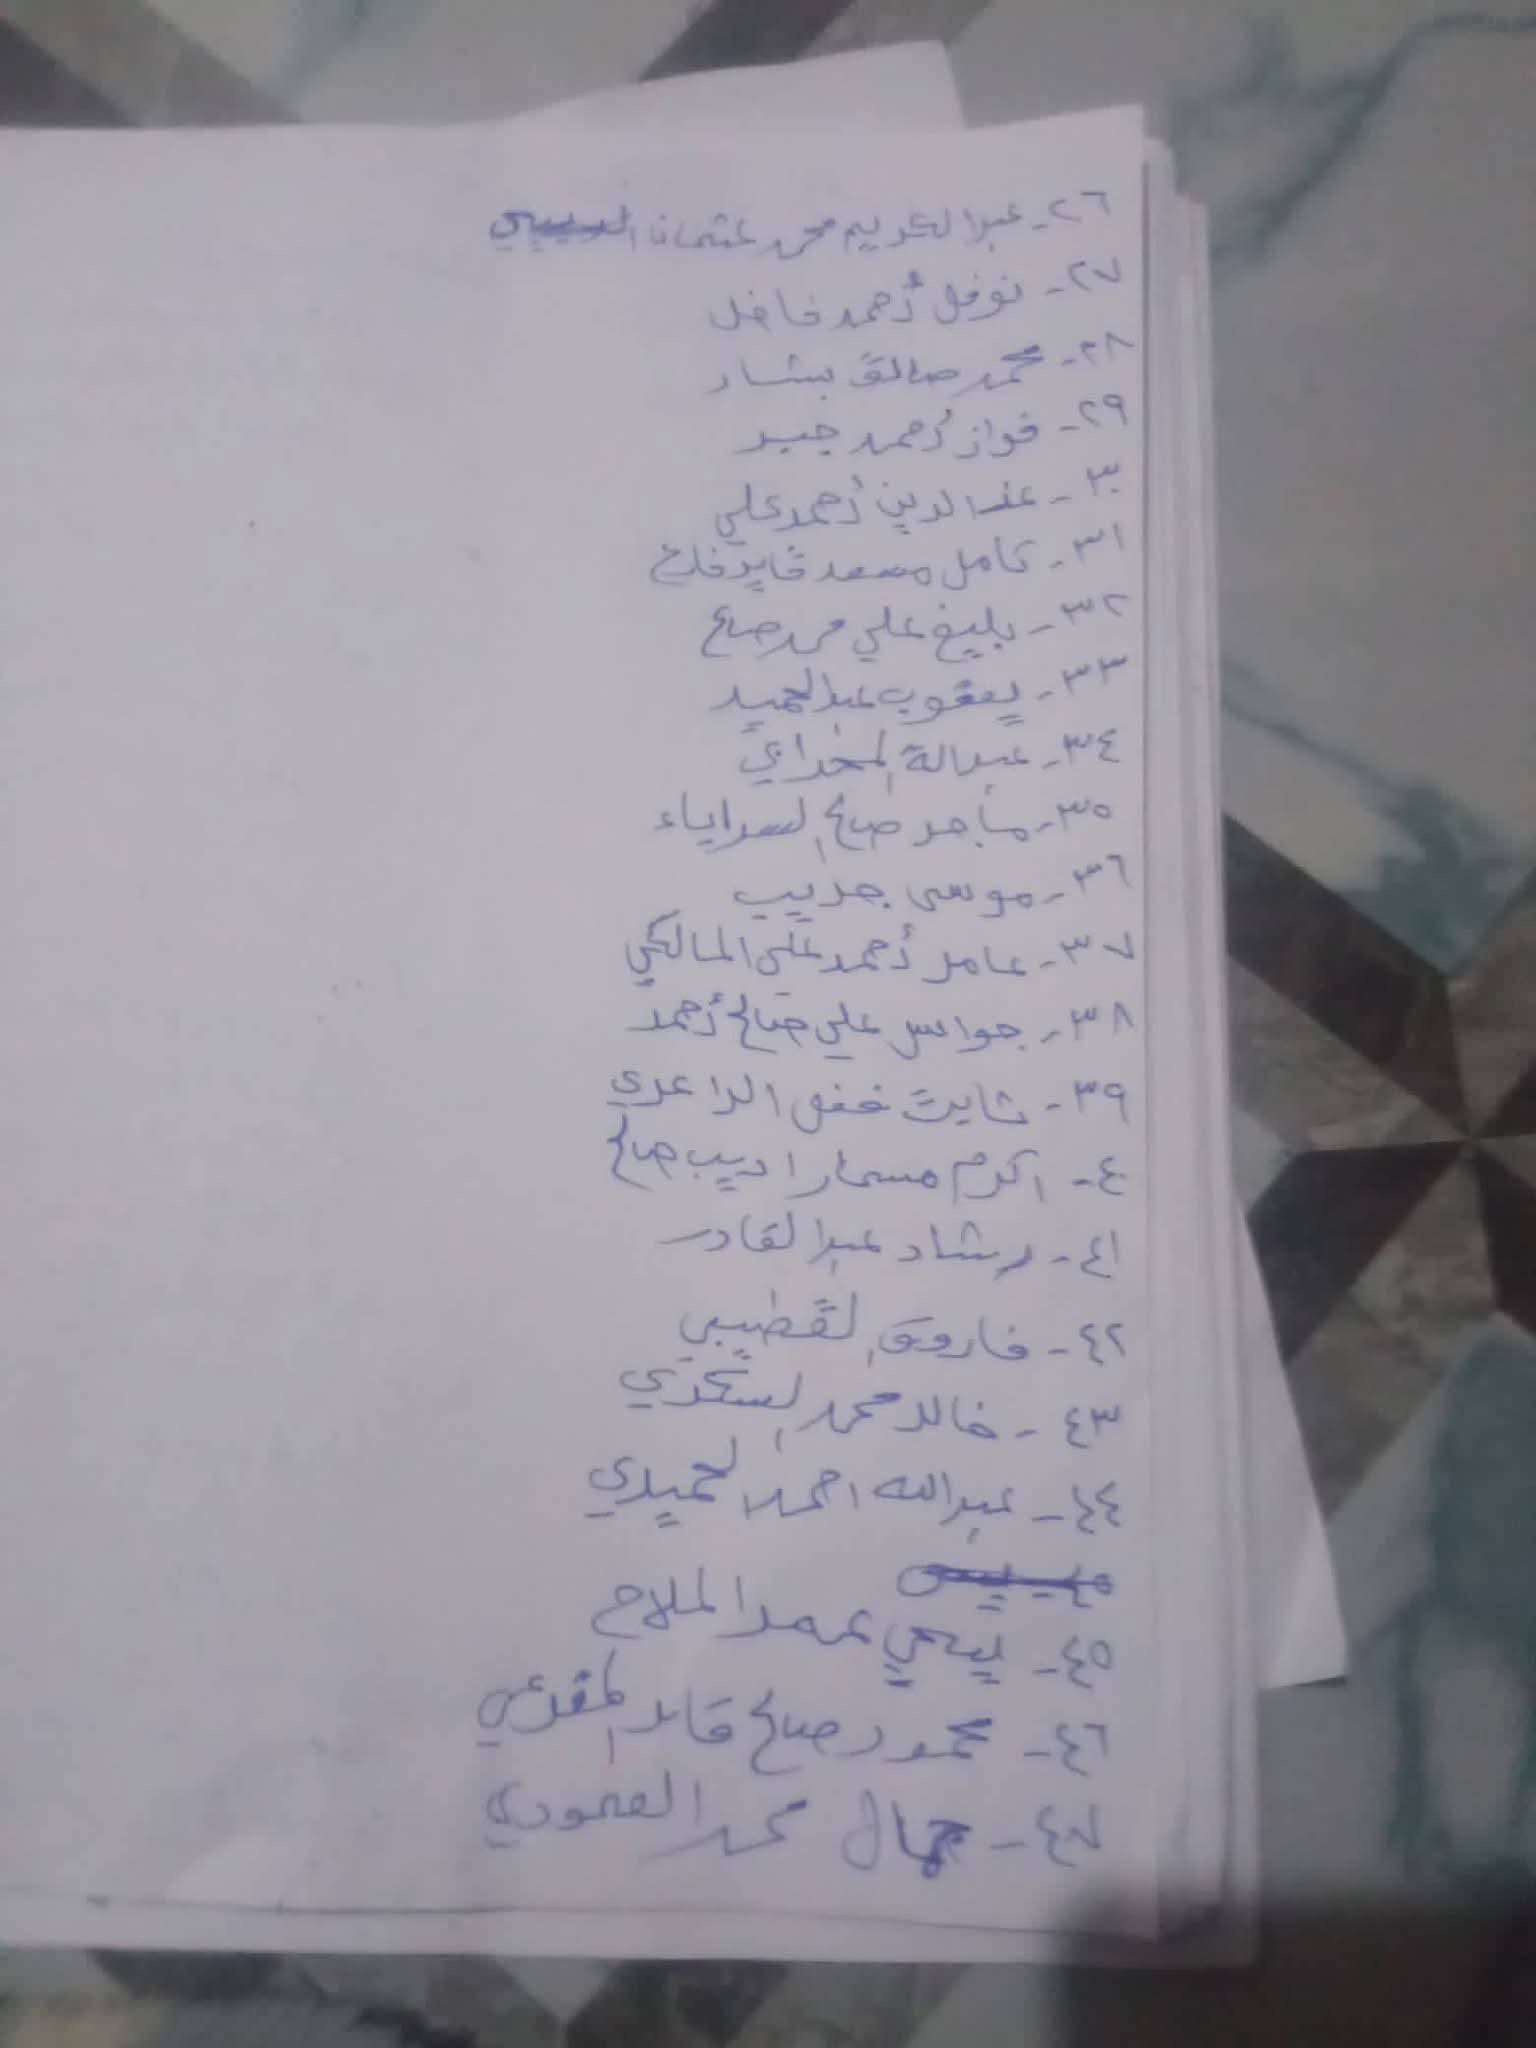 ٢٦- عبدالكريم محمد عثمان
٢٧- نوفل أحمد فاضل
٢٨- محمد صالق بشار
٢٩- فواز أحمد جبر
٣٠- عند الدين أحمد علي
٣١- كامل مسعد قايد فارع
٣٢- بليغ علي محمد صالح
٣٣- يعقوب عبدالحميد
٣٤- عبدالة
٣٥- ماجد صالح
٣٦- موسى جديب
٣٧- عامر أحمد علي المالكي
٣٨- جواس علي صالح أحمد
٣٩- ثابت الداعري
٤٠- اكرم مسمار اديب صالح
٤١- رشاد عبدالقادر
٤٢- فاروق القطيبي
٤٣- خالد محمد
٤٤- عبدالله احمد الحميدي
٤٥- يحي الملاح
٤٦- محمود صالح قائد المقرعي
٤٧- جمال محمد العمودي